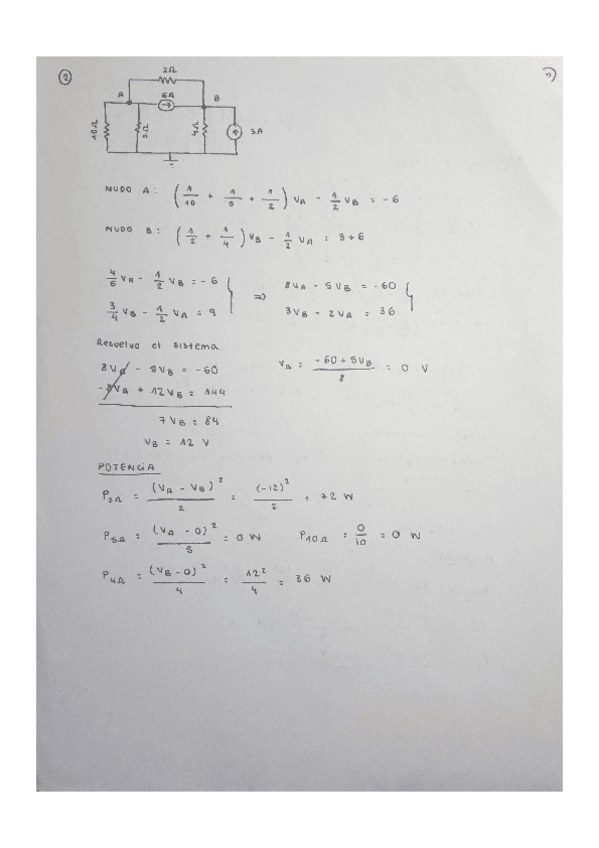 2
2Ω
A 6A B
10Ω 5Ω 4Ω 3A
NUDO A: (1/10 + 1/5 + 1/2) VA - 1/2 VB = -6
NUDO B: (1/2 + 1/4) VB - 1/2 VA = 3+6
4/5 VA - 1/2 VB = -6
3/4 VB - 1/2 VA = 9
=>
8VA - 5VB = -60
3VB - 2VA = 36
Resuelvo el sistema
8VA - 5VB = -60
-8VA + 12VB = 144
7VB = 84
VB = 12 V
VA = (-60 + 5VB)/8 = 0 V
POTENCIA
P2Ω = (VA - VB)²/2 = (-12)²/2 = 72 W
P5Ω = (VA - 0)²/5 = 0 W P10Ω = 0/10 = 0 W
P4Ω = (VB - 0)²/4 = 12²/4 = 36 W